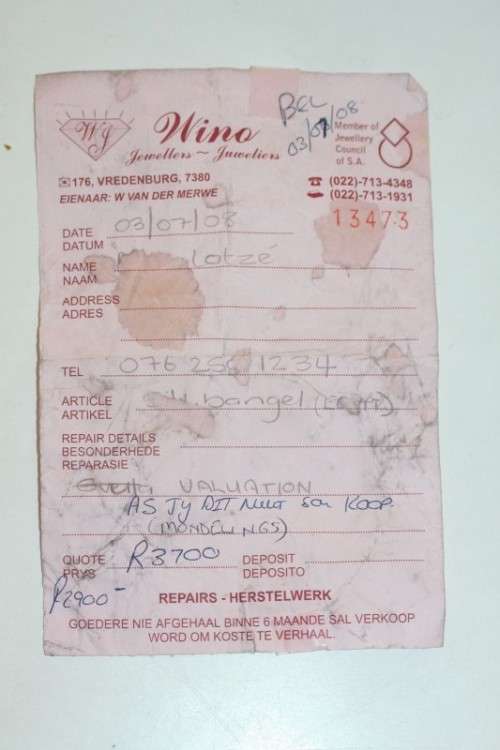 WJ
Wino
Jewellers ~ Juweliers
BEL
03/07/08
Member of
Jewellery
Council
of S.A.
176, VREDENBURG, 7380
EIENAAR: W VAN DER MERWE
(022)-713-4348
(022)-713-1931
13473
DATE 03/07/08
DATUM
NAME Lotzé
NAAM
ADDRESS
ADRES
TEL 076 255 1234
ARTICLE bangel
ARTIKEL
REPAIR DETAILS
BESONDERHEDE
REPARASIE
VALUATION
AS JY DIT NUUT sou KOOP
(MONDELINGS)
QUOTE R3700 DEPOSIT
PRYS DEPOSITO
R2900-
REPAIRS - HERSTELWERK
GOEDERE NIE AFGEHAAL BINNE 6 MAANDE SAL VERKOOP
WORD OM KOSTE TE VERHAAL.